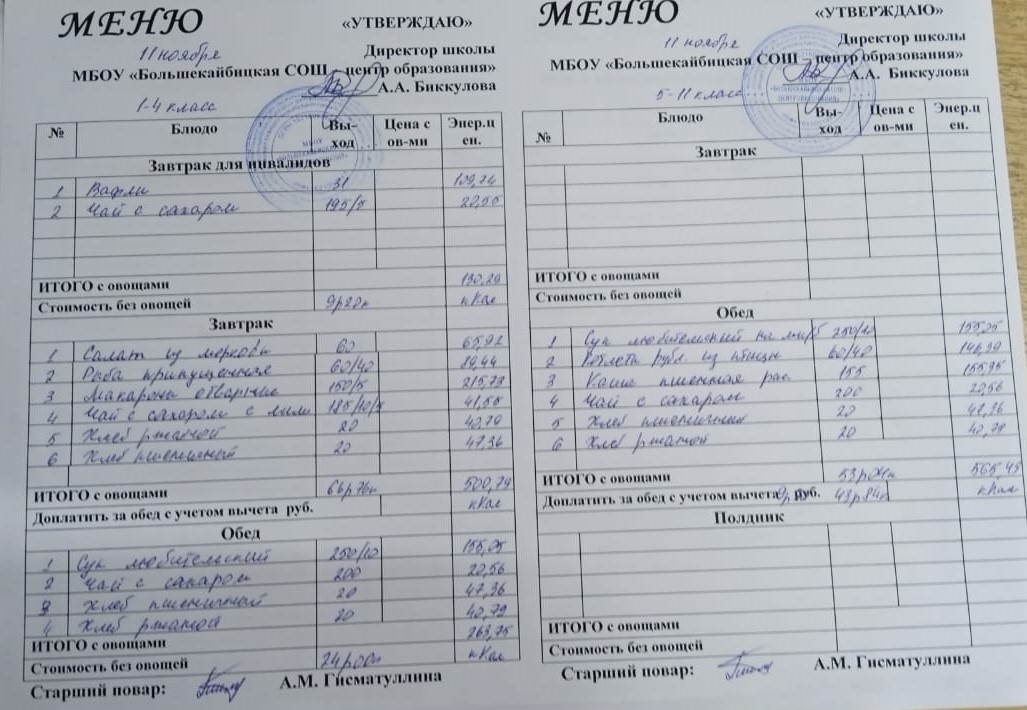 МЕНЮ
«УТВЕРЖДАЮ»
11 ноября
Директор школы
МБОУ «Большекайбицкая СОШ – центр образования»
А.А. Биккулова
1-4 класс
№ Блюдо Вы-ход Цена с ов-ми Энер.ц ен.
Завтрак для инвалидов
1 Вафли 31
2 Чай с сахаром 195/5
ИТОГО с овощами
Стоимость без овощей 9р20к кКал
Завтрак
1 Салат из моркови 60 65,92
2 Рыба припущенная 60/40
3 Макароны отварные 150/5 215,79
4 Чай с сахаром с лим 185/10/5
5 Хлеб ржаной 20 40,79
6 Хлеб пшеничный 20 47,36
ИТОГО с овощами 66р76к 500,79
Доплатить за обед с учетом вычета руб. кКал
Обед
1 Суп любительский 250/10 155,25
2 Чай с сахаром 200 22,56
3 Хлеб пшеничный 20 47,36
4 Хлеб ржаной 20 40,79
ИТОГО с овощами
Стоимость без овощей 24р00к кКал
Старший повар: А.М. Гисматуллина
МЕНЮ
«УТВЕРЖДАЮ»
11 ноября
Директор школы
МБОУ «Большекайбицкая СОШ – центр образования»
А.А. Биккулова
5-11 класс
№ Блюдо Вы-ход Цена с ов-ми Энер.ц ен.
Завтрак
ИТОГО с овощами
Стоимость без овощей
Обед
1 Суп любительский на 250/10 155,25
2 Котлета рубл. из птицы 60/40 146,99
3 Каша пшенная рас. 155
4 Чай с сахаром 200 22,56
5 Хлеб пшеничный 20
6 Хлеб ржаной 20 40,79
ИТОГО с овощами 53р04к 565,45
Доплатить за обед с учетом вычета руб. 43р84к кКал
Полдник
ИТОГО с овощами
Стоимость без овощей
Старший повар: А.М. Гисматуллина